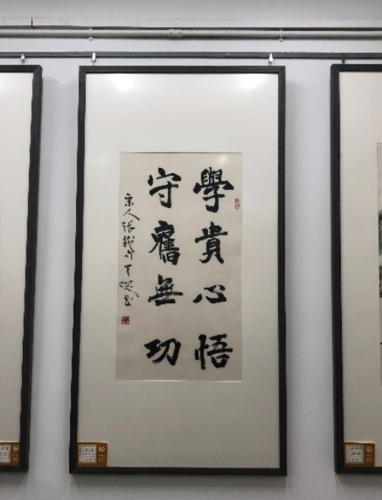 學貴心悟
守舊無功
宋人張載句